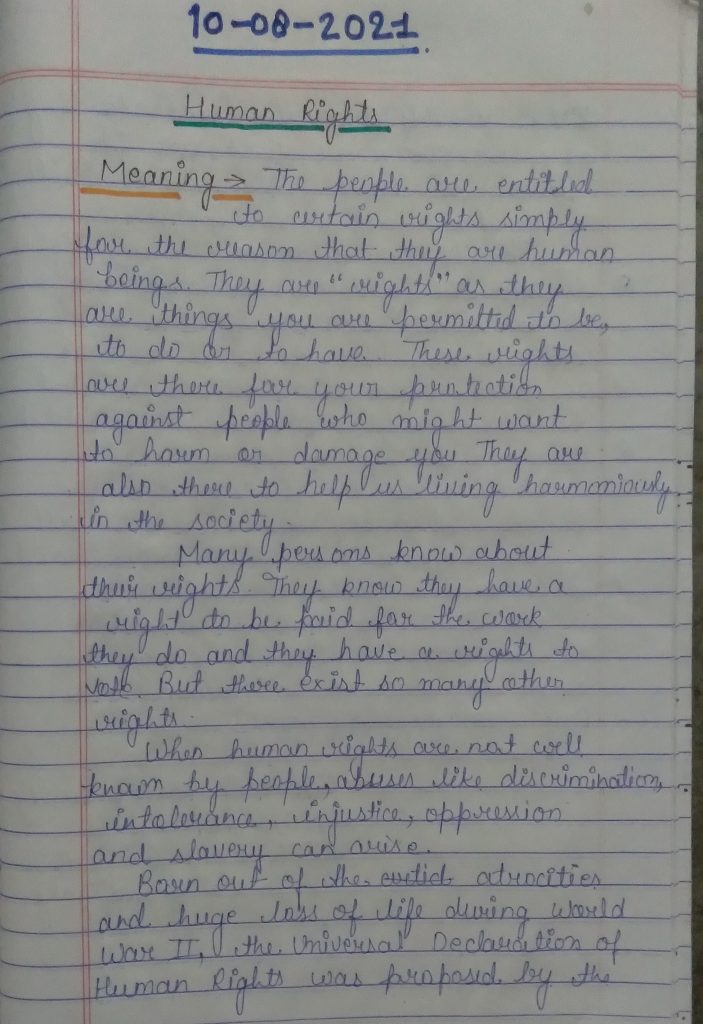 10-08-2021
Human Rights
Meaning → The people are entitled
to certain rights simply
for the reason that they are human
beings. They are "rights" as they
are things you are permitted to be,
to do or to have. These rights
are there for your protection
against people who might want
to harm or damage you They are
also there to help us living harmoniously
in the society.
Many persons know about
their rights. They know they have a
right to be paid for the work
they do and they have a rights to
vote. But there exist so many other
rights.
When human rights are not well
known by people, abuses like discrimination,
intolerance, injustice, oppression
and slavery can arise.
Born out of the atrocities
and huge loss of life during World
War II, the Universal Declaration of
Human Rights was proposed by the